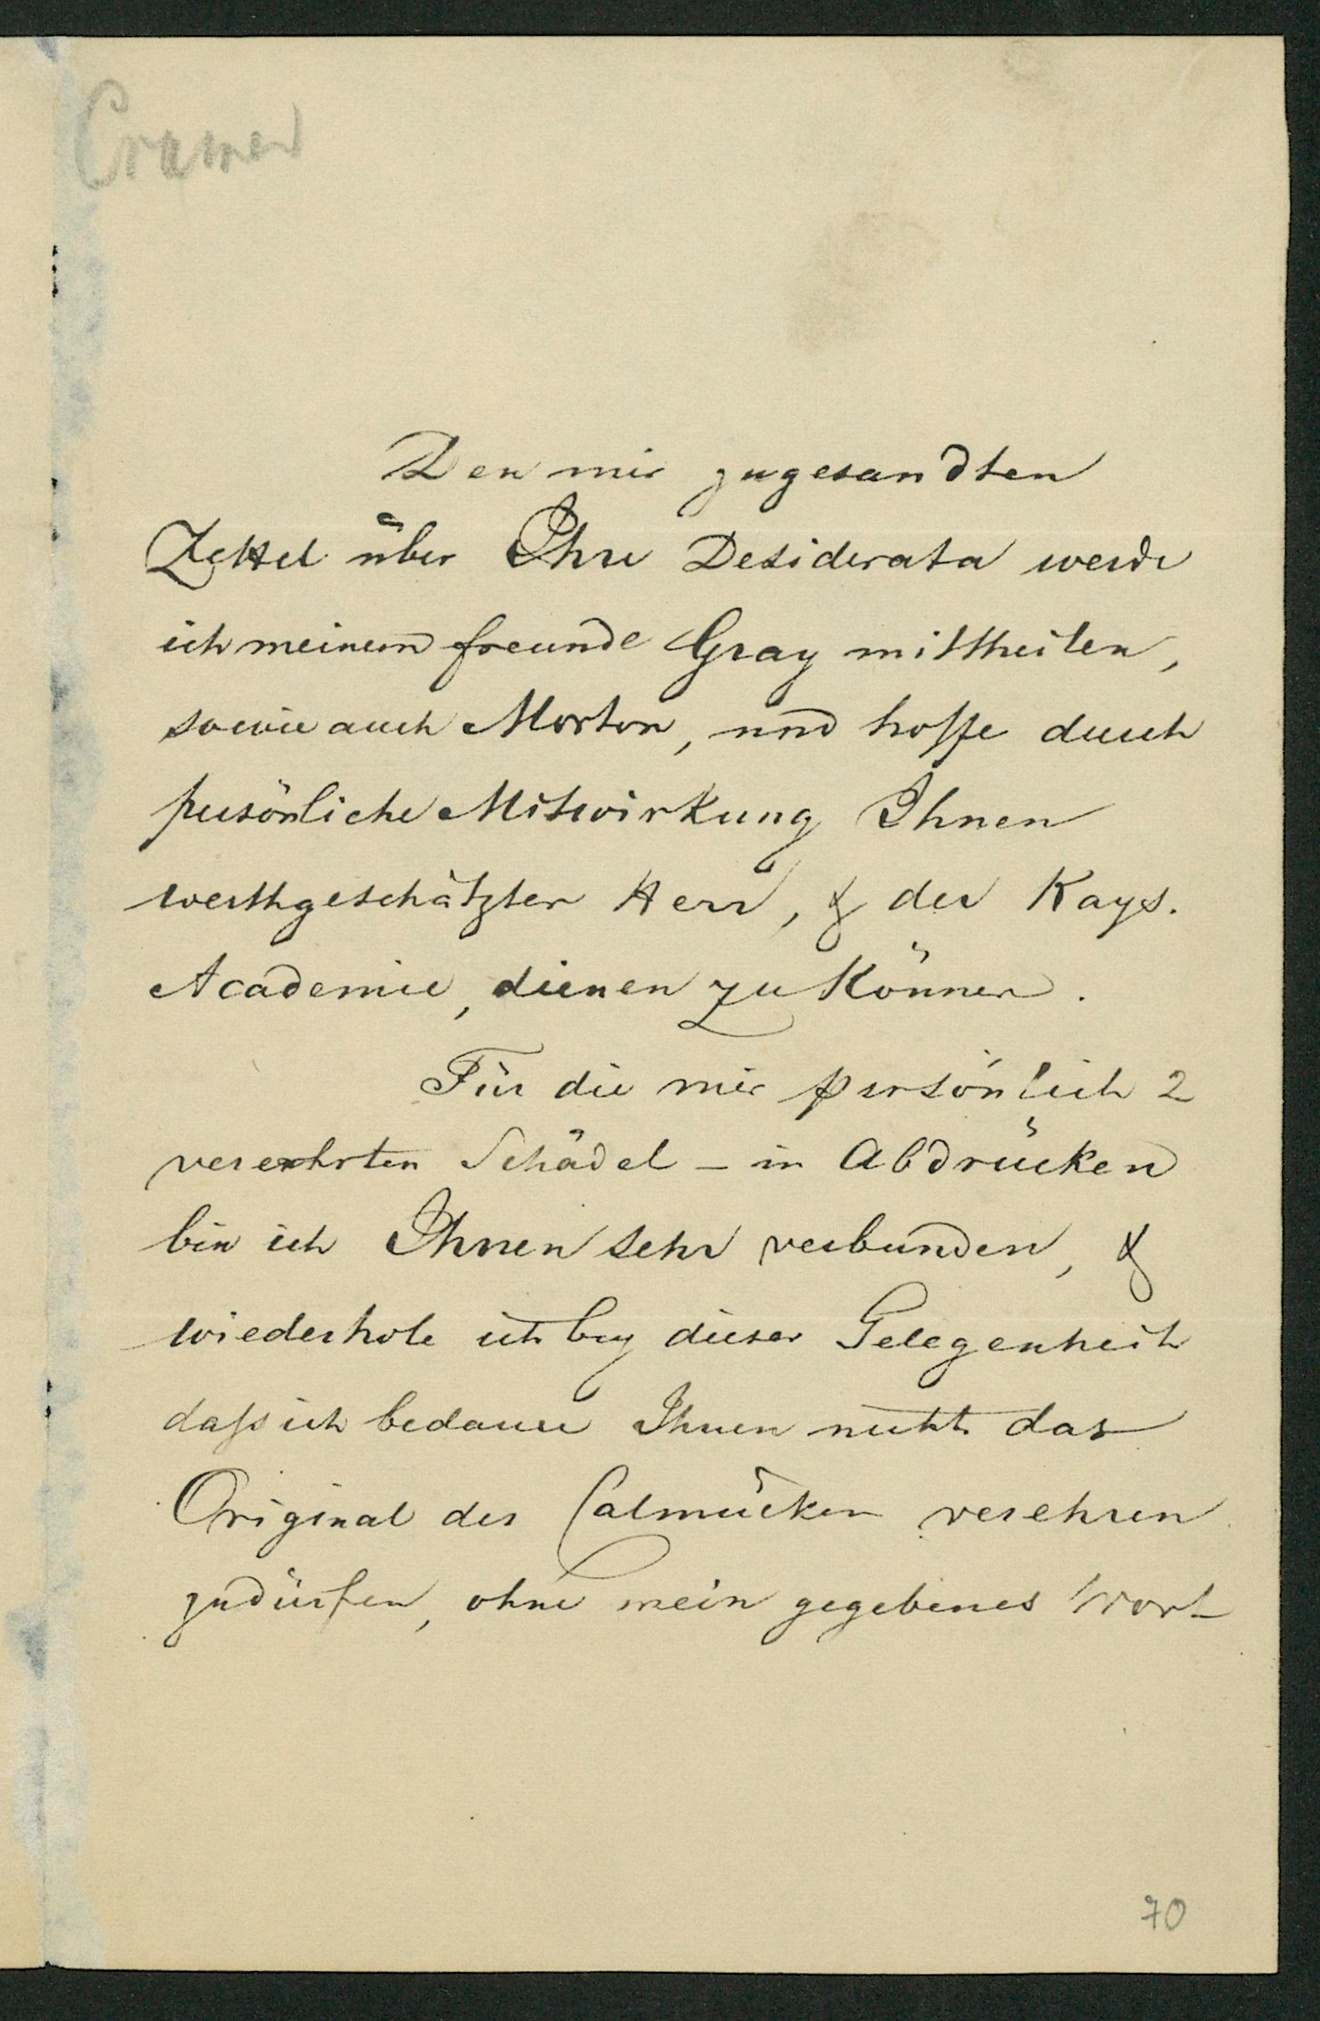 Cramer
Den mir zugesandten
Zettel über Ihre Desiderata werde
ich meinem freunde Gray mittheilen,
sowie auch Morton, und hoffe durch
persönliche Mitwirkung Ihnen
werthgeschätzter Herr, & der Kays.
Academie, dienen zu Können.
Für die mir persönlich 2
verehrten Schädel - in Abdrücken
bin ich Ihnen sehr verbunden, &
wiederhole ich bey dieser Gelegenheit
daß ich bedaure Ihnen nicht das
Original des Calmücken verehren
zudürfen, ohne mein gegebenes Wort
70